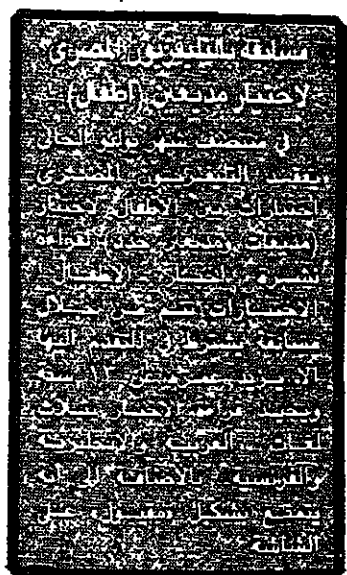 مسابقة بالتليفزيون المصرى
لاختيار مذيعين (أطفال)
فى منتصف شهر يوليو الحالى
يعقد التليفزيون المصرى
اختبارات من الأطفال لاختيار
(مذيعات ومذيعين جدد) لقراءة
نشرة اخبار الاطفال
الاختبارات تتم من خلال
مسابقة يشترط فى المتقدم اليها
الا يزيد عمره على ١٦ سنة
ويجيد قراءة الاخبار بثلاث
لغات العربية والانجليزية
والفرنسية بالاضافة الى انه
يتمتع بشكل مقبول على
الشاشة